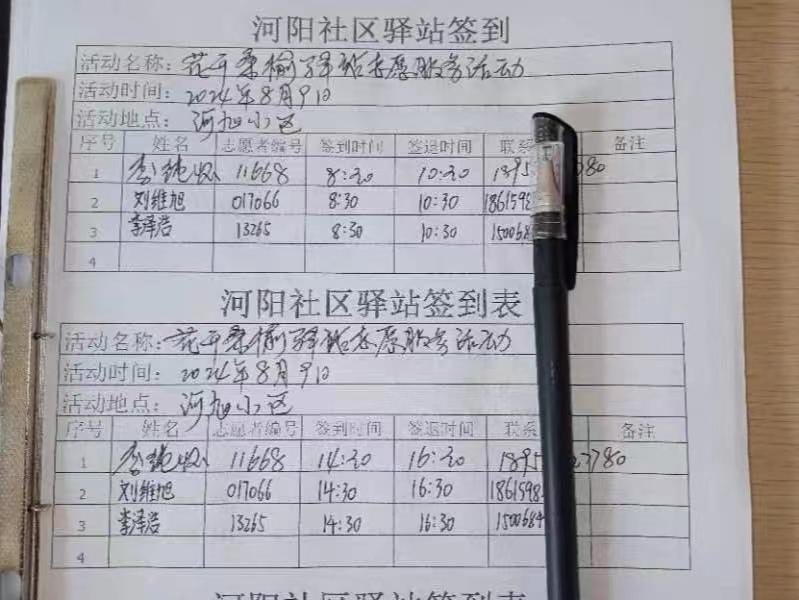 河阳社区驿站签到
活动名称: 花开桑榆驿站志愿服务活动
活动时间: 2024年8月9日
活动地点: 河旭小区
序号 姓名 志愿者编号 签到时间 签退时间 联系 备注
1 李 11668 8:30 10:30 1895 780
2 刘维旭 017066 8:30 10:30 1861598
3 李泽浩 13265 8:30 10:30 150068
4
河阳社区驿站签到表
活动名称: 花开桑榆驿站志愿服务活动
活动时间: 2024年8月9日
活动地点: 河旭小区
序号 姓名 志愿者编号 签到时间 签退时间 联系 备注
1 李 11668 14:30 16:30 1895 3780
2 刘维旭 017066 14:30 16:30 1861598
3 李泽浩 13265 14:30 16:30 1500684
4
河阳社区驿站签到表